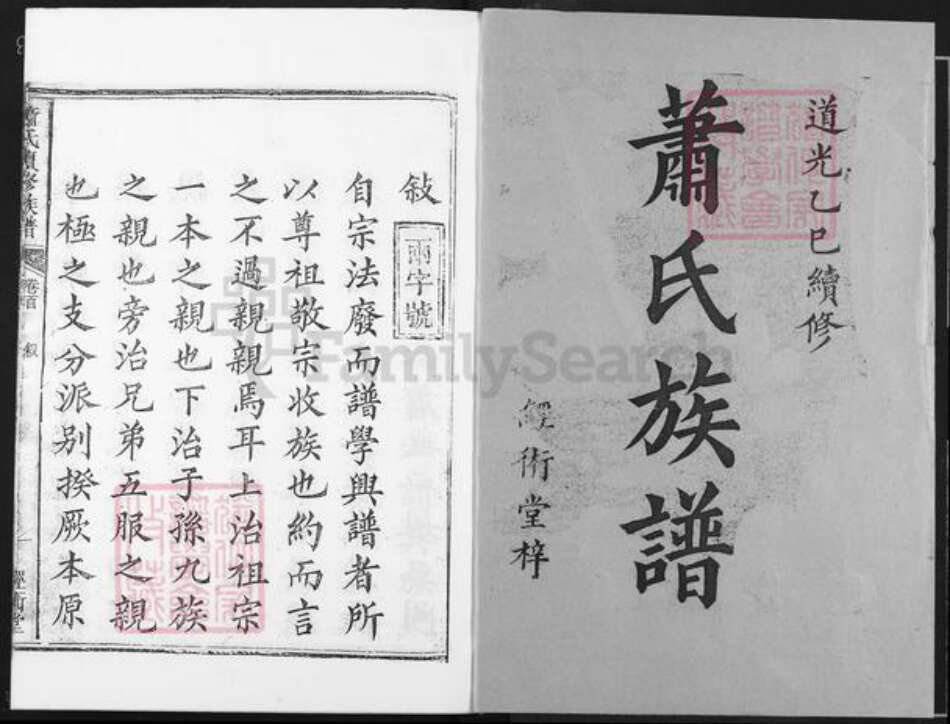 道光乙巳續修
蕭氏族譜
經術堂梓
敍
兩字號
自宗法廢而譜學興譜者所
以尊祖敬宗收族也約而言
之不過親親焉耳上治祖宗
一本之親也下治子孫九族
之親也旁治兄弟五服之親
也極之支分派别揆厥本原
蕭氏續修族譜
卷首
叙
一
經術堂
FamilySearch